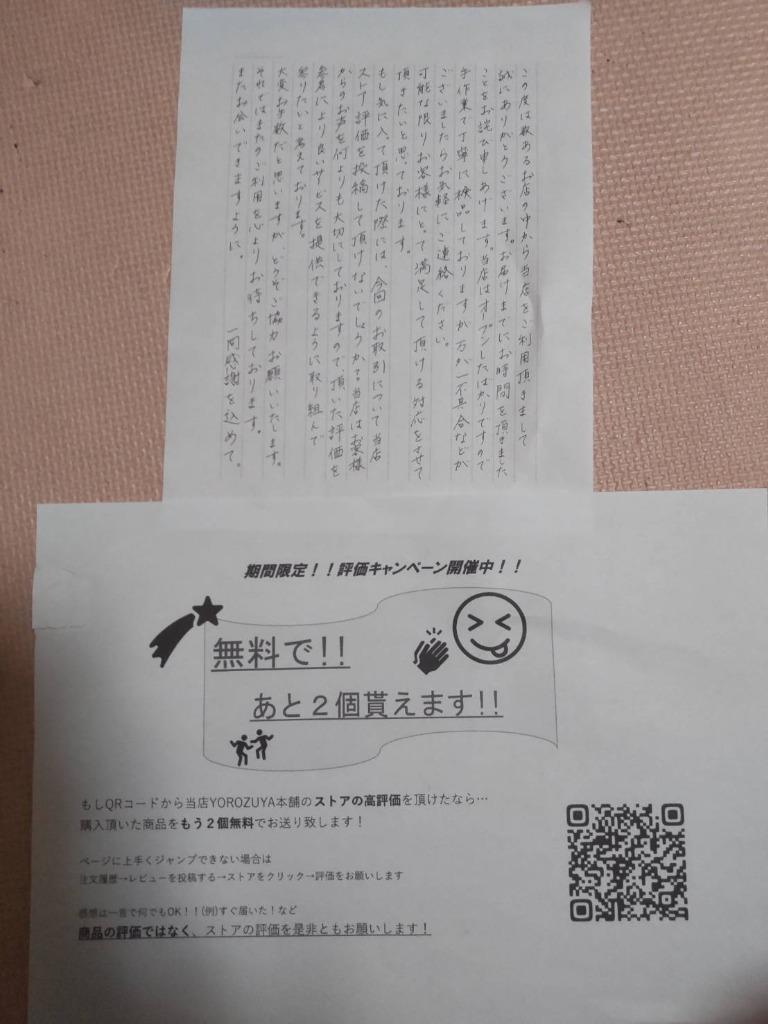 この度は数あるお店の中から当店をご利用頂きまして
誠にありがとうございます。お届けまでにお時間を頂きました
ことをお詫び申しあげます。当店はオープンしたばかりですので
手作業で丁寧に検品しておりますが万が一不具合などが
ございましたらお気軽にご連絡ください。
可能な限りお客様にとって満足して頂ける対応をさせて
頂きたいと思っております。
もし気に入って頂けた際には、今回のお取引について当店
ストア評価を投稿して頂けないでしょうか?当店はお客様
からのお声を何よりも大切にしておりますので、頂いた評価を
参考により良いサービスを提供できるように取り組んで
参りたいと考えております。
大変お手数だと思いますが、どうぞご協力お願いいたします。
それではまたのご利用を心よりお待ちしております。
またお会いできますように。
一同感謝を込めて。
期間限定!!評価キャンペーン開催中!!
無料で!!
あと2個貰えます!!
もしQRコードから当店YOROZUYA本舗のストアの高評価を頂けたなら…
購入頂いた商品をもう2個無料でお送り致します!
ページに上手くジャンプできない場合は
注文履歴→レビューを投稿する→ストアをクリック→評価をお願いします
感想は一言で何でもOK!!(例)すぐ届いた!など
商品の評価ではなく、ストアの評価を是非ともお願いします!